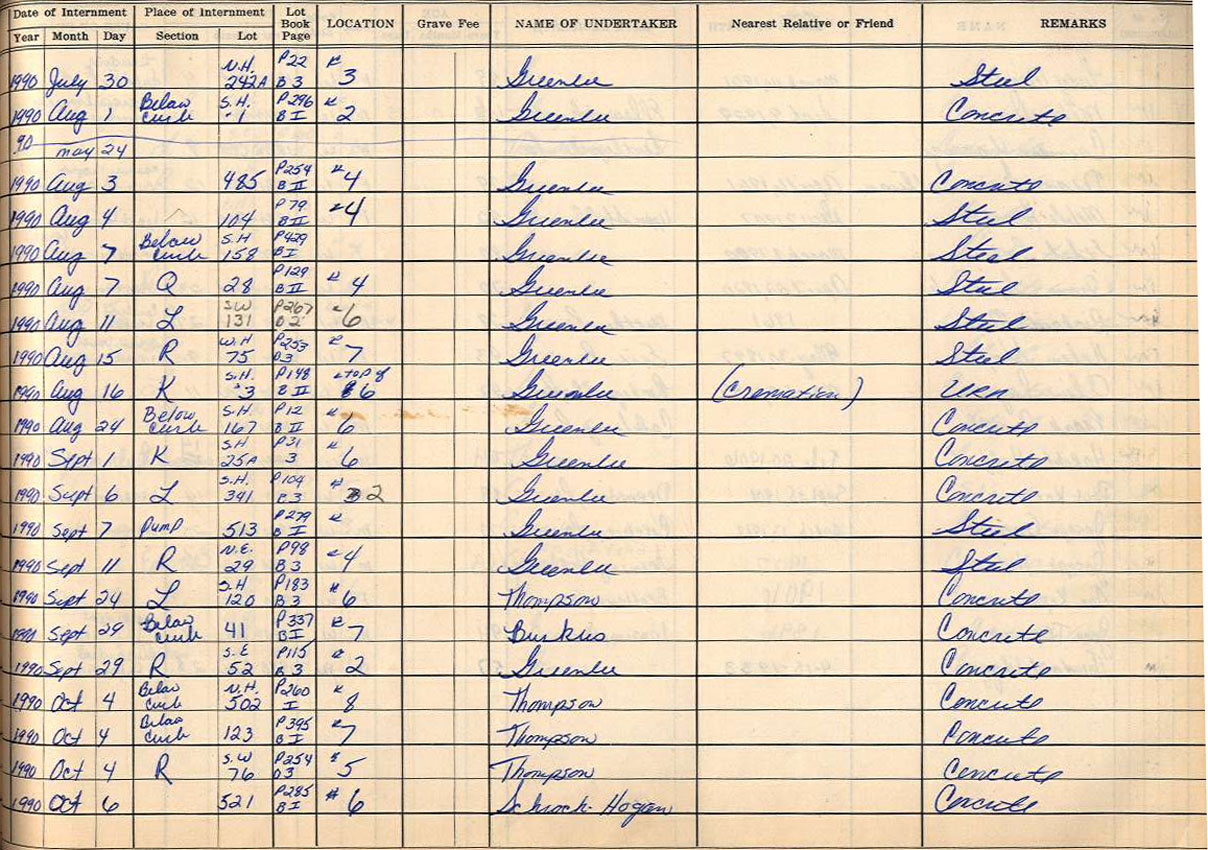 Date of Internment Place of Internment Lot Book Page LOCATION Grave Fee NAME OF UNDERTAKER Nearest Relative or Friend REMARKS
Year Month Day Section Lot
1990 July 30 N.H. 242A P22 B 3 # 3 Greenlee Steel
1990 Aug 1 Below curb S.H. 1 P296 B I # 2 Greenlee Concrete
90 may 24
1990 Aug 3 485 P254 B II # 4 Greenlee Concrete
1990 Aug 4 104 P79 B II # 4 Greenlee Steel
1990 Aug 7 Below curb S.H 158 P429 B I Greenlee Steel
1990 Aug 7 Q 28 P129 B II # 4 Greenlee Steel
1990 Aug 11 L S.W 131 P267 B 2 # 6 Greenlee Steel
1990 Aug 15 R W.H 75 P253 B3 # 7 Greenlee Steel
1990 Aug 16 K S.H. 3 P148 B II top of 6 Greenlee (Cremation) URN
1990 Aug 24 Below curb S.H. 167 P12 B II # 6 Greenlee Concrete
1990 Sept 1 K S.H 25A P31 3 # 6 Greenlee Concrete
1990 Sept 6 L S.H. 341 P104 B 3 # 2 Greenlee Concrete
1990 Sept 7 Pump 513 P279 B I # Greenlee Steel
1990 Sept 11 R N.E. 29 P98 B 3 # 4 Greenlee Steel
1990 Sept 24 L S.H 120 P183 B 3 # 6 Thompson Concrete
1990 Sept 29 Below curb 41 P337 B I # 7 Burkus Concrete
1990 Sept 29 R S.E 52 P115 B 3 # 2 Greenlee Concrete
1990 Oct 4 Below curb N.H. 502 P260 I # 8 Thompson Concrete
1990 Oct 4 Below curb 123 P395 B I # 7 Thompson Concrete
1990 Oct 4 R S.W 76 P254 B3 # 5 Thompson Concrete
1990 Oct 6 521 P285 B I # 6 Schrock-Hogan Concrete